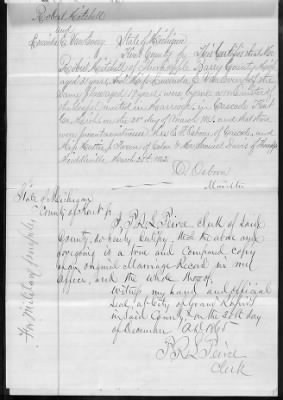 Robert Mitchell
and
E. VanEvery
State of Michigan
Kent County ss
This Certifies that Mr
Robert Mitchell of Thornapple Barry County Mich
aged 21 years And Miss E. VanEvery of the
same place aged 18 years were by me a Minister of
the Gospel united in marriage in Cascade Kent
Co Mich on the 20th day of March 1862 and that there
were present as witnesses
Osborn of Cascade, and
Miss
of
Mr Samuel Davis of
Middleville March 20th 1862
O. Osborn
Minister
State of Michigan
County of Kent ss
I, P.R.L. Peirce Clerk of said
County, do hereby Certify, that the above and
foregoing is a true and Compared copy
of an original Marriage Record in my
office, and the whole thereof
Witness my hand and Official
Seal, at City of Grand Rapids
in said County, on the 20th day
of December A.D. 1865
P.R.L. Peirce
Clerk
For Military purposes